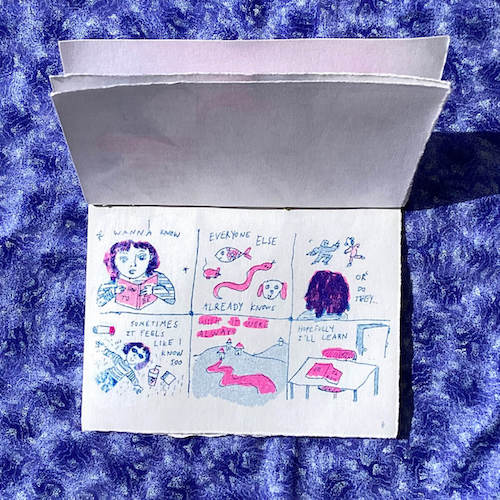 I WANNA KNOW
HOW
TO
BE
EVERYONE ELSE
ALREADY KNOWS
OR
DO
THEY...
SOMETIMES
IT FEELS
LIKE I
KNOW
TOO
ALWAYS
HOPEFULLY
I'LL LEARN